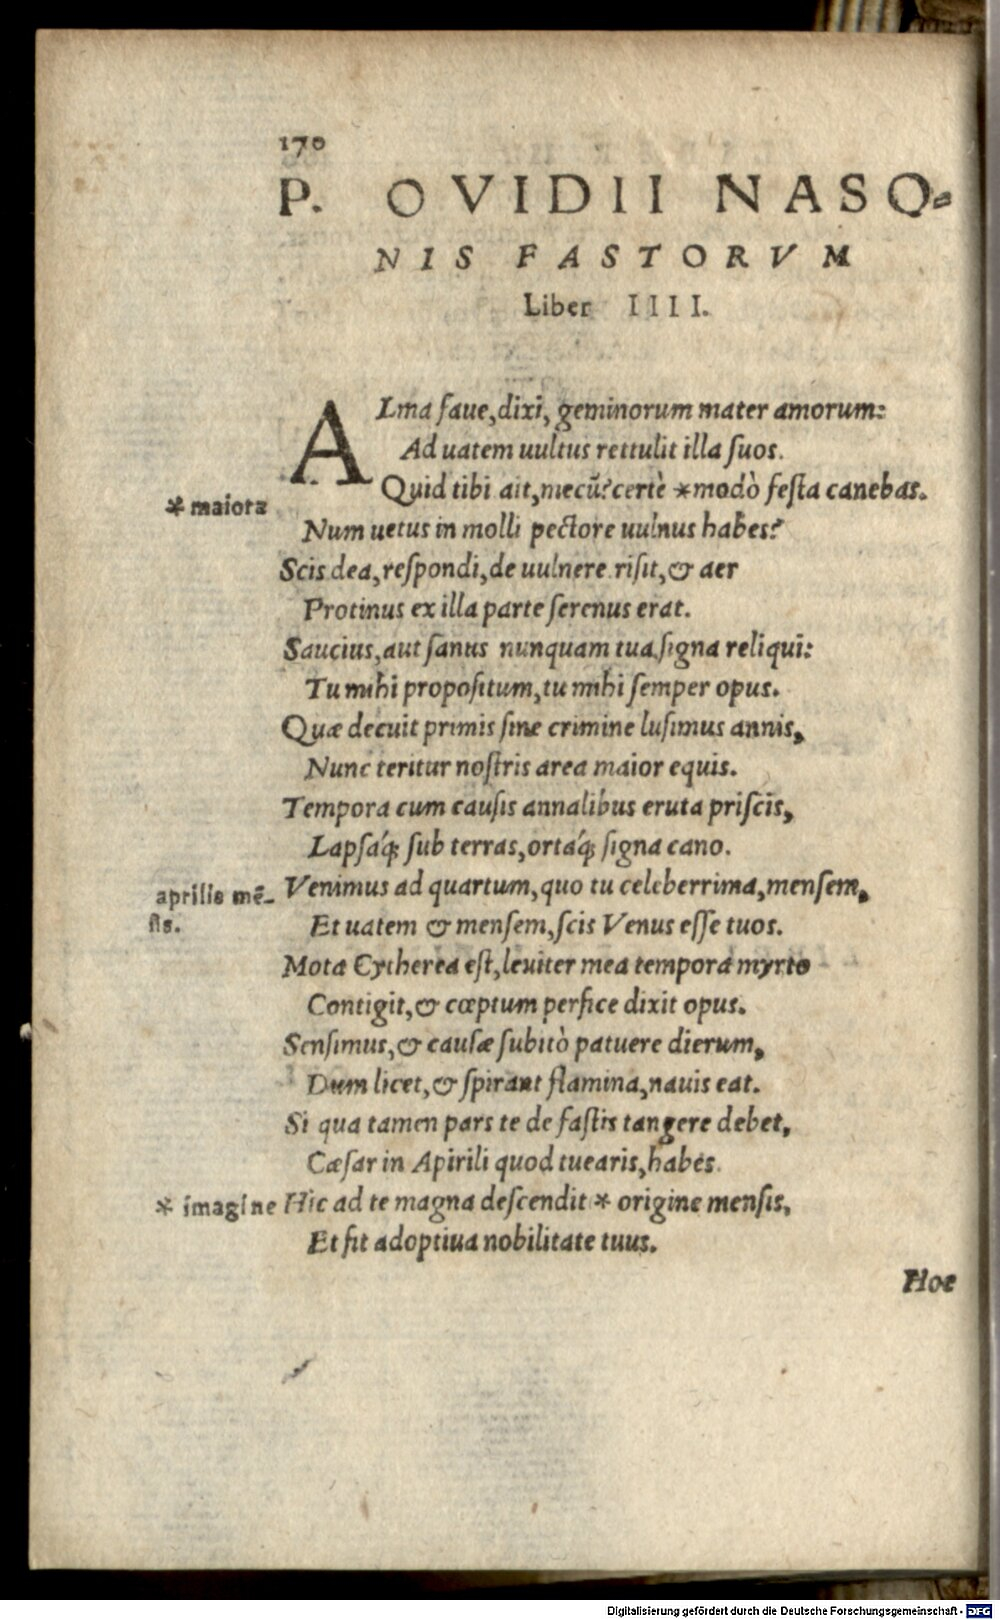 170
P. OVIDII NASO⸗
NIS FASTORVM
Liber IIII.
ALma faue, dixi, geminorum mater amorum:
Ad uatem uultus rettulit illa ſuos.
Quid tibi ait, mecũ? certè *modò feſta canebas.
* maiora
Num uetus in molli pectore uulnus habes?
Scis dea, reſpondi, de uulnere. riſit, & aer
Protinus ex illa parte ſerenus erat.
Saucius, aut ſanus nunquam tua ſigna reliqui:
Tu mihi propoſitum, tu mihi ſemper opus.
Quæ decuit primis ſine crimine luſimus annis,
Nunc teritur noſtris area maior equis.
Tempora cum cauſis annalibus eruta priſcis,
Lapſáq; ſub terras, ortáq; ſigna cano.
Venimus ad quartum, quo tu celeberrima, menſem,
aprilis mẽ-
ſis.
Et uatem & menſem, ſcis Venus eſſe tuos.
Mota Cytherea eſt, leuiter mea tempora myrto
Contigit, & cœptum perfice dixit opus.
Senſimus, & cauſæ ſubitò patuere dierum,
Dum licet, & ſpirant flamina, nauis eat.
Si qua tamen pars te de faſtis tangere debet,
Cæſar in Apirili quod tuearis, habes.
* imagine Hic ad te magna deſcendit * origine menſis,
Et fit adoptiua nobilitate tuus.
Hoc
Digitalisierung gefördert durch die Deutsche Forschungsgemeinschaft - DFG